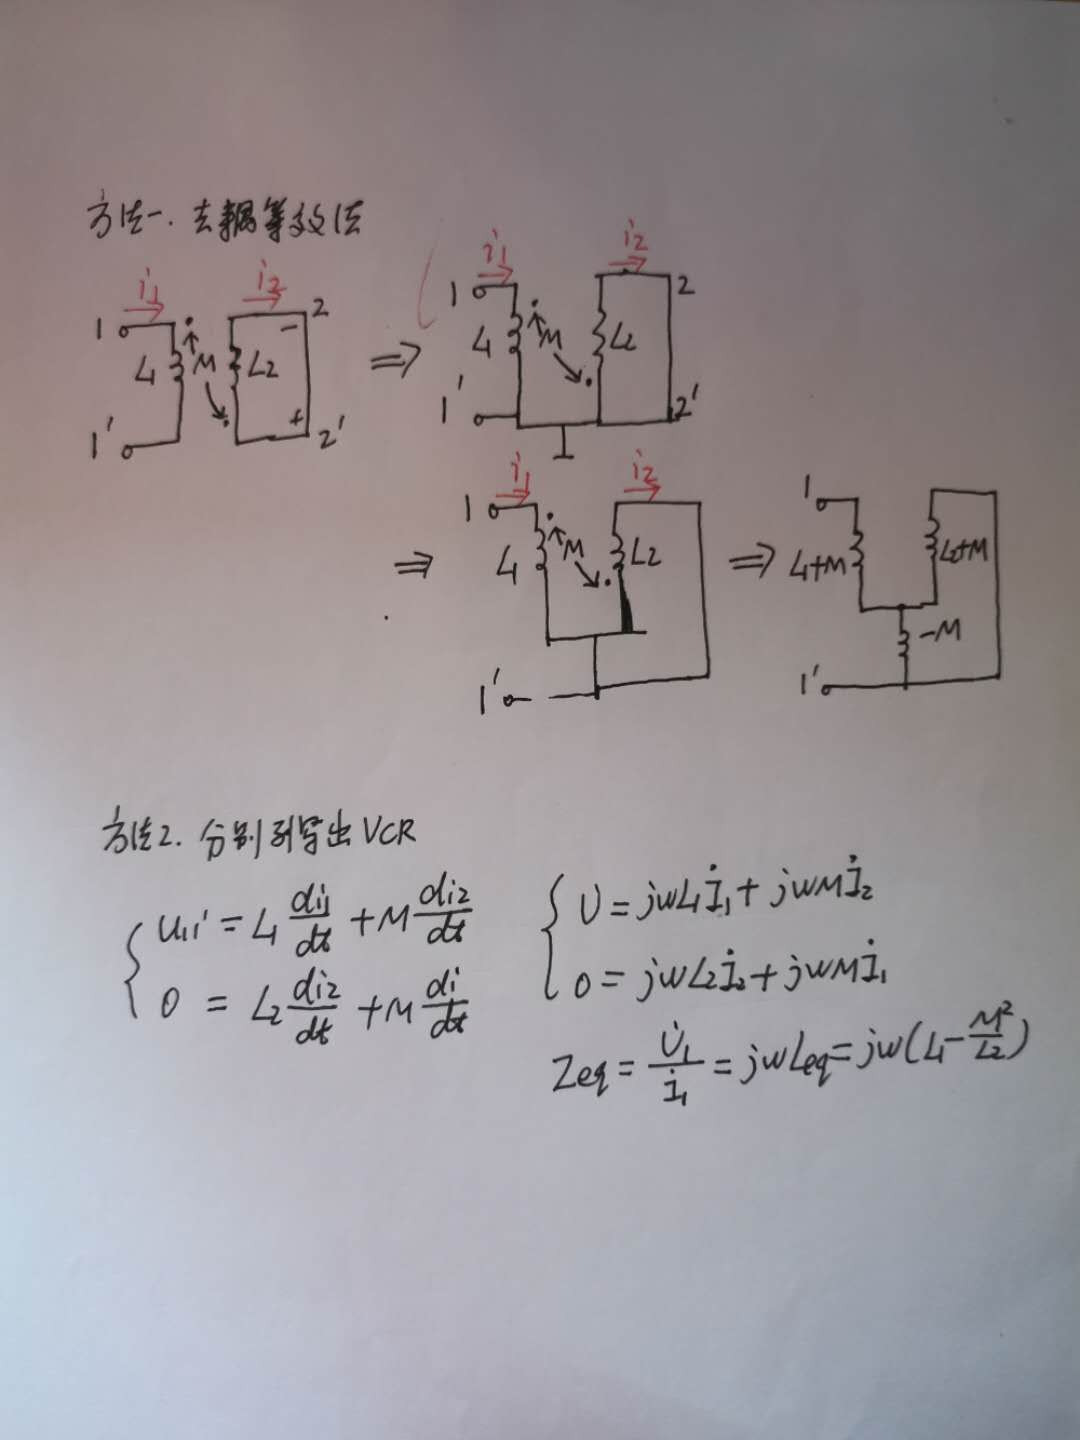 方法一. 去耦等效法
i1 i2 i1 i2
1 L1 M L2 2 − + 1' 2' ⇒ 1 L1 M L2 2 1' 2'
i1 i2
⇒ 1 L1 M L2 1' ⇒ 1 L1+M L2+M −M 1'
方法2. 分别列写出VCR
u11' = L1 di1/dt + M di2/dt
0 = L2 di2/dt + M di/dt
U = jwL1İ1 + jwMİ2
0 = jwL2İ2 + jwMİ1
Zeq = U̇1/İ1 = jwLeq = jw(L1 − M²/L2)